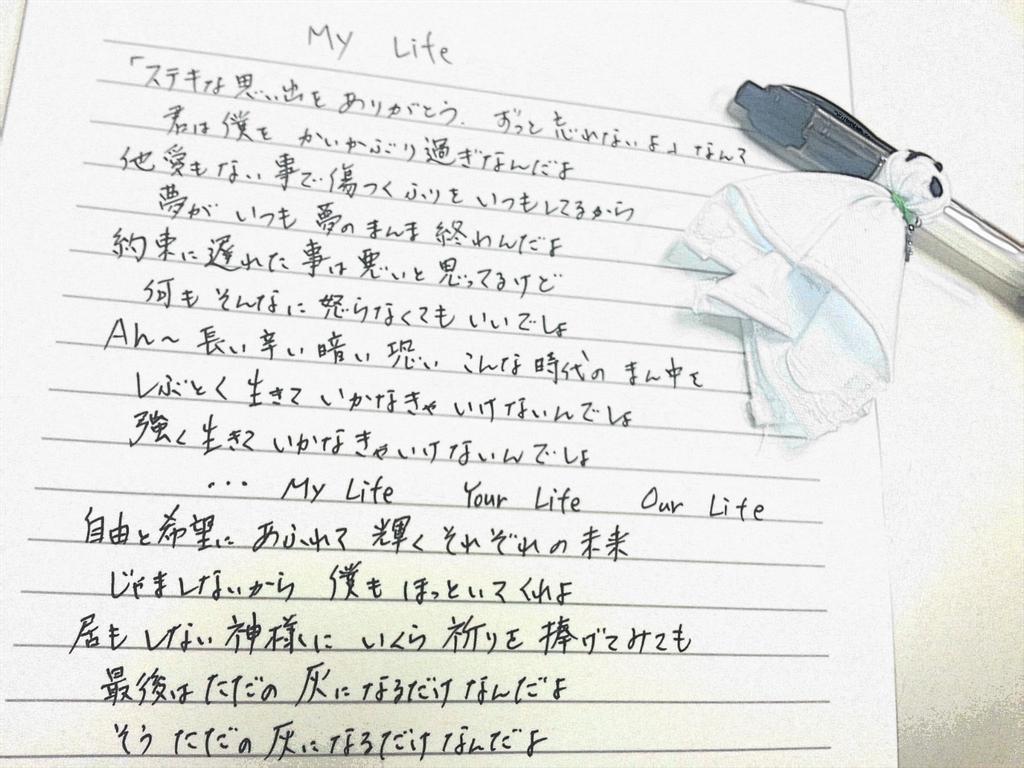 My Life
「ステキな思い出を ありがとう. ずっと忘れないよ」なんて
君は僕を かいかぶり過ぎなんだよ
他愛もない事で傷つくふりをいつもしてるから
夢が いつも 夢のまんま 終わんだよ
約束に遅れた事は悪いと思ってるけど
何も そんなに 怒らなくても いいでしょ
Ah～ 長い 辛い 暗い 恐い こんな 時代の まん中を
しぶとく 生きて いかなきゃ いけないんでしょ
強く 生きて いかなきゃいけないんでしょ
... My Life Your Life Our Life
自由と希望に あふれて 輝く それぞれの 未来
じゃましないから 僕も ほっといてくれよ
居もしない 神様に いくら 祈りを 捧げてみても
最後は ただの 灰に なるだけ なんだよ
そう ただの 灰に なるだけ なんだよ